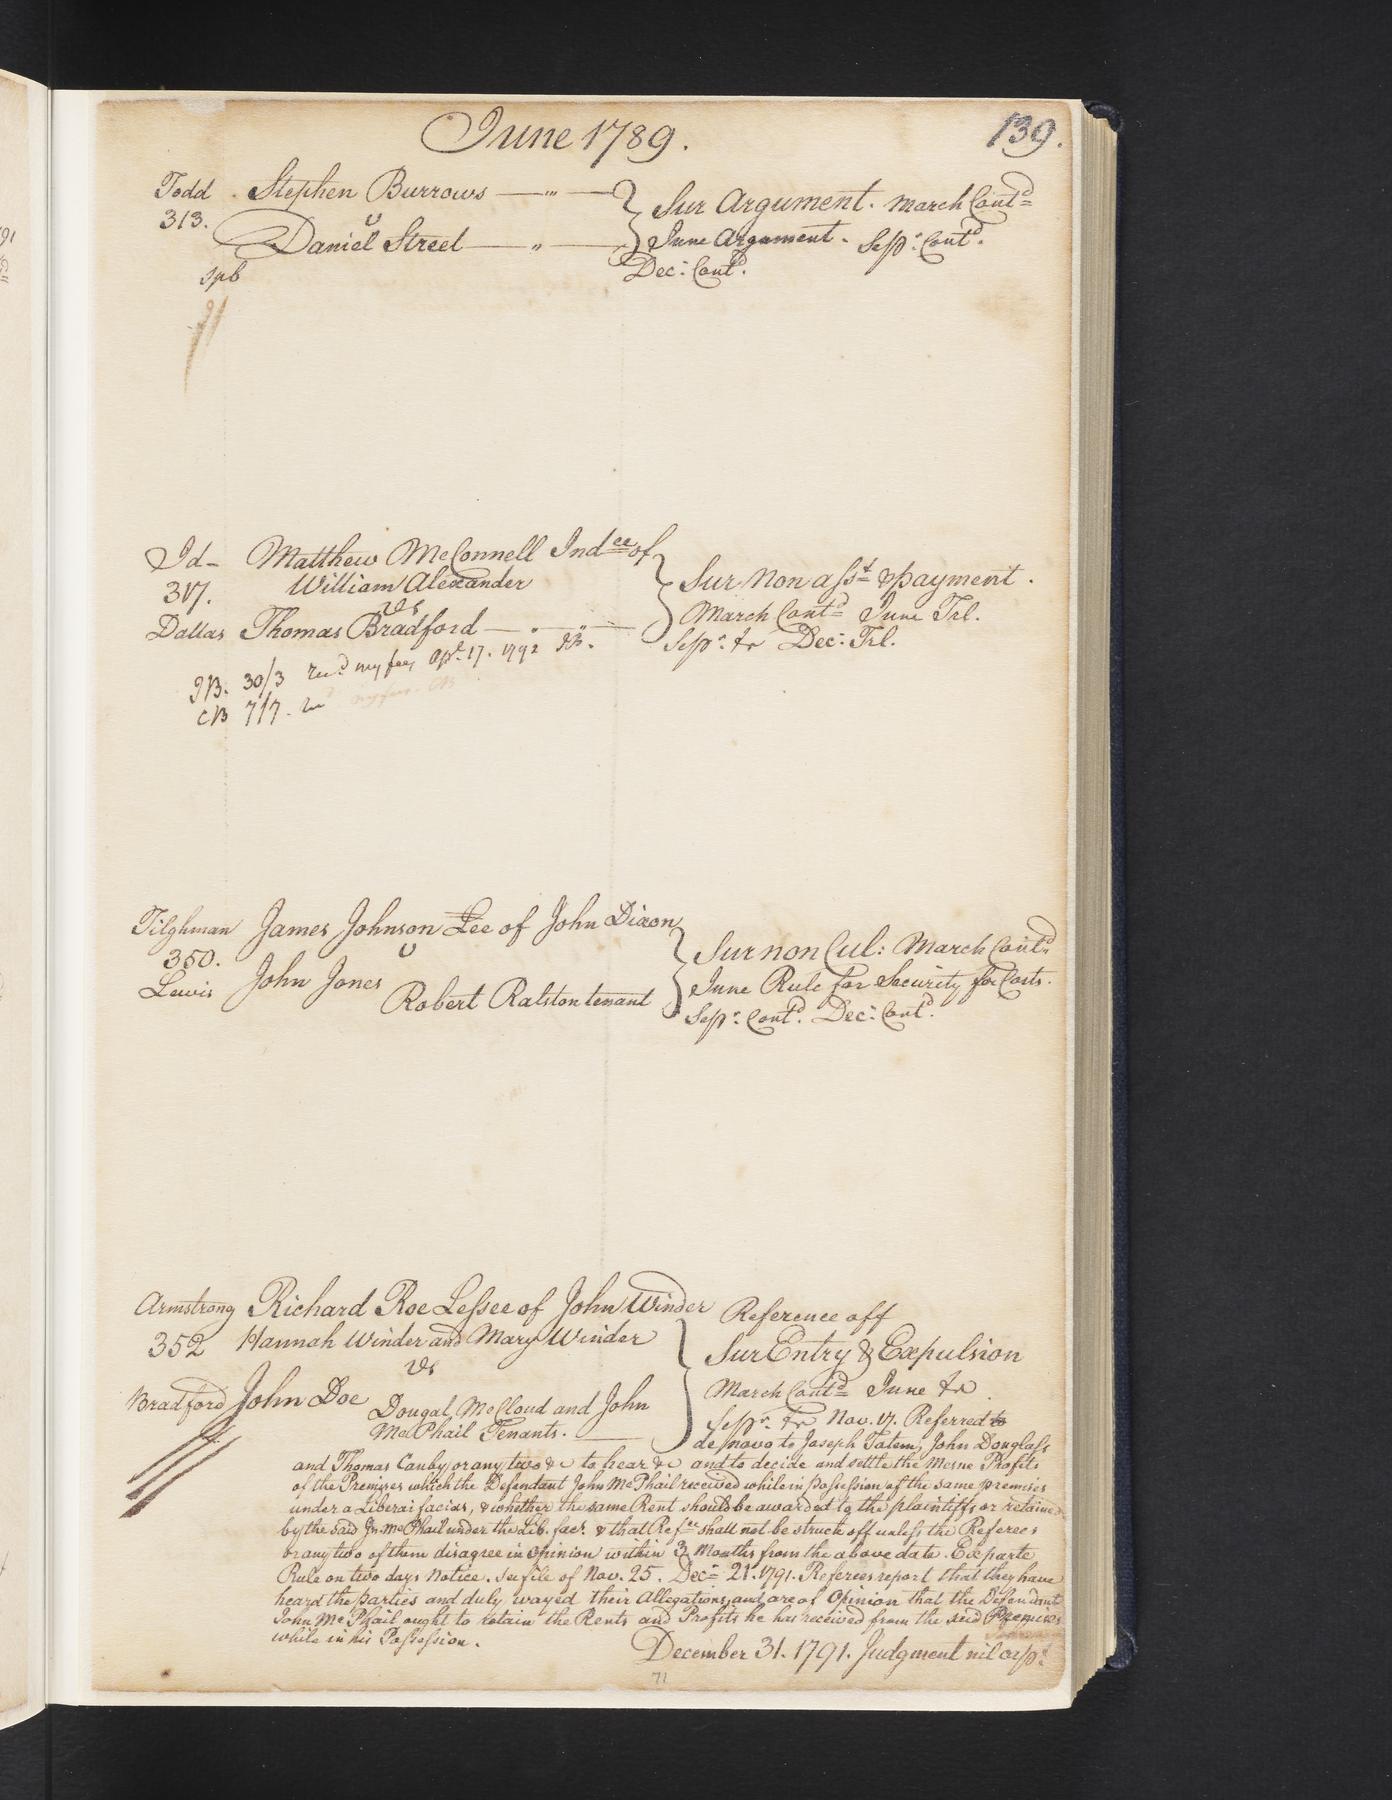 June 1789.
139.
Todd . Stephen Burrows — " — } Sur Argument. March Contd
313. v June Argument. Sepr. Contd.
Daniel Street — " —
Dec: Contd.
spb
Id- Matthew McConnell Indee of
317. William Alexander } Sur Non asst & payment.
vs March Contd June Trl.
Dallas Thomas Bradford — " — " — Sepr. tr Dec: Trl.
JB. 30/3 recd my fees Apl. 17. 1792 JB.
CB 7/7. recd my fees. CB
Tilghman James Johnson Lee of John Dixon
350. v } Sur non Cul: March Contd
Lewis John Jones June Rule for Security for Costs.
Robert Ralston tenant Sepr. Contd. Dec: Contd.
Armstrong Richard Roe Lessee of John Winder Reference off
352 Hannah Winder and Mary Winder } Sur Entry & Expulsion
vs March Contd June tr.
Bradford John Doe Dougal McCloud and John Sepr. tr Nov. 17. Referred to
McPhail Tenants. — de novo to Joseph Tatem, John Douglass
and Thomas Canby or any two &c to hear &c and to decide and settle the Mesne Profits
of the Premises which the Defendant John McPhail received while in possession of the same premises
under a Liberai facias, & whether the same Rent should be awarded to the plaintiffs or retained
by the said Jn. McPhail under the Lib. facs. & that Refce shall not be struck off unless the Referees
or any two of them disagree in Opinion within 3 Months from the above date. Ex parte
Rule on two days Notice. See file of Nov. 25. Decr 21. 1791. Referees report that they have
heard the parties and duly wayed their Allegations, and are of Opinion that the Defendant
John McPhail ought to retain the Rents and Profits he has received from the said Premises
while in his Possession.
December 31. 1791. Judgment nil caps.
71